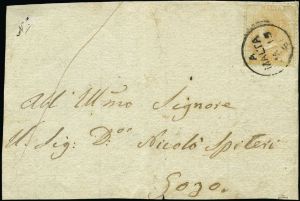 A
MALTA
Ad' Ill'mo Signore
Il Sig: Dn. Nicolò Spiteri
Gozo.